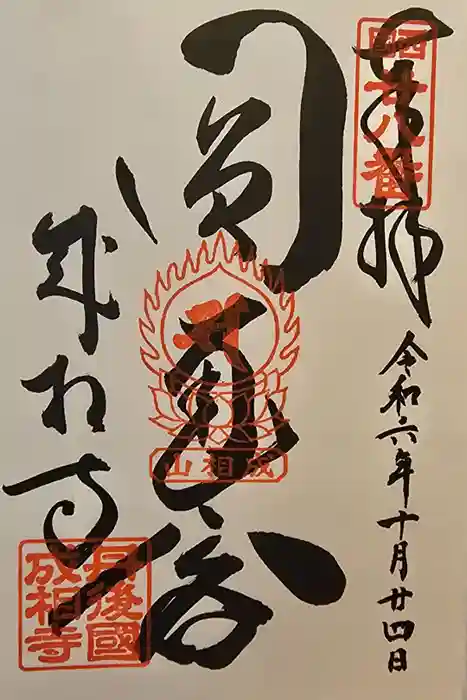 奉拝
西國
廿八番
令和六年十月廿四日
圓
成相山
成相寺
丹後國
成相寺